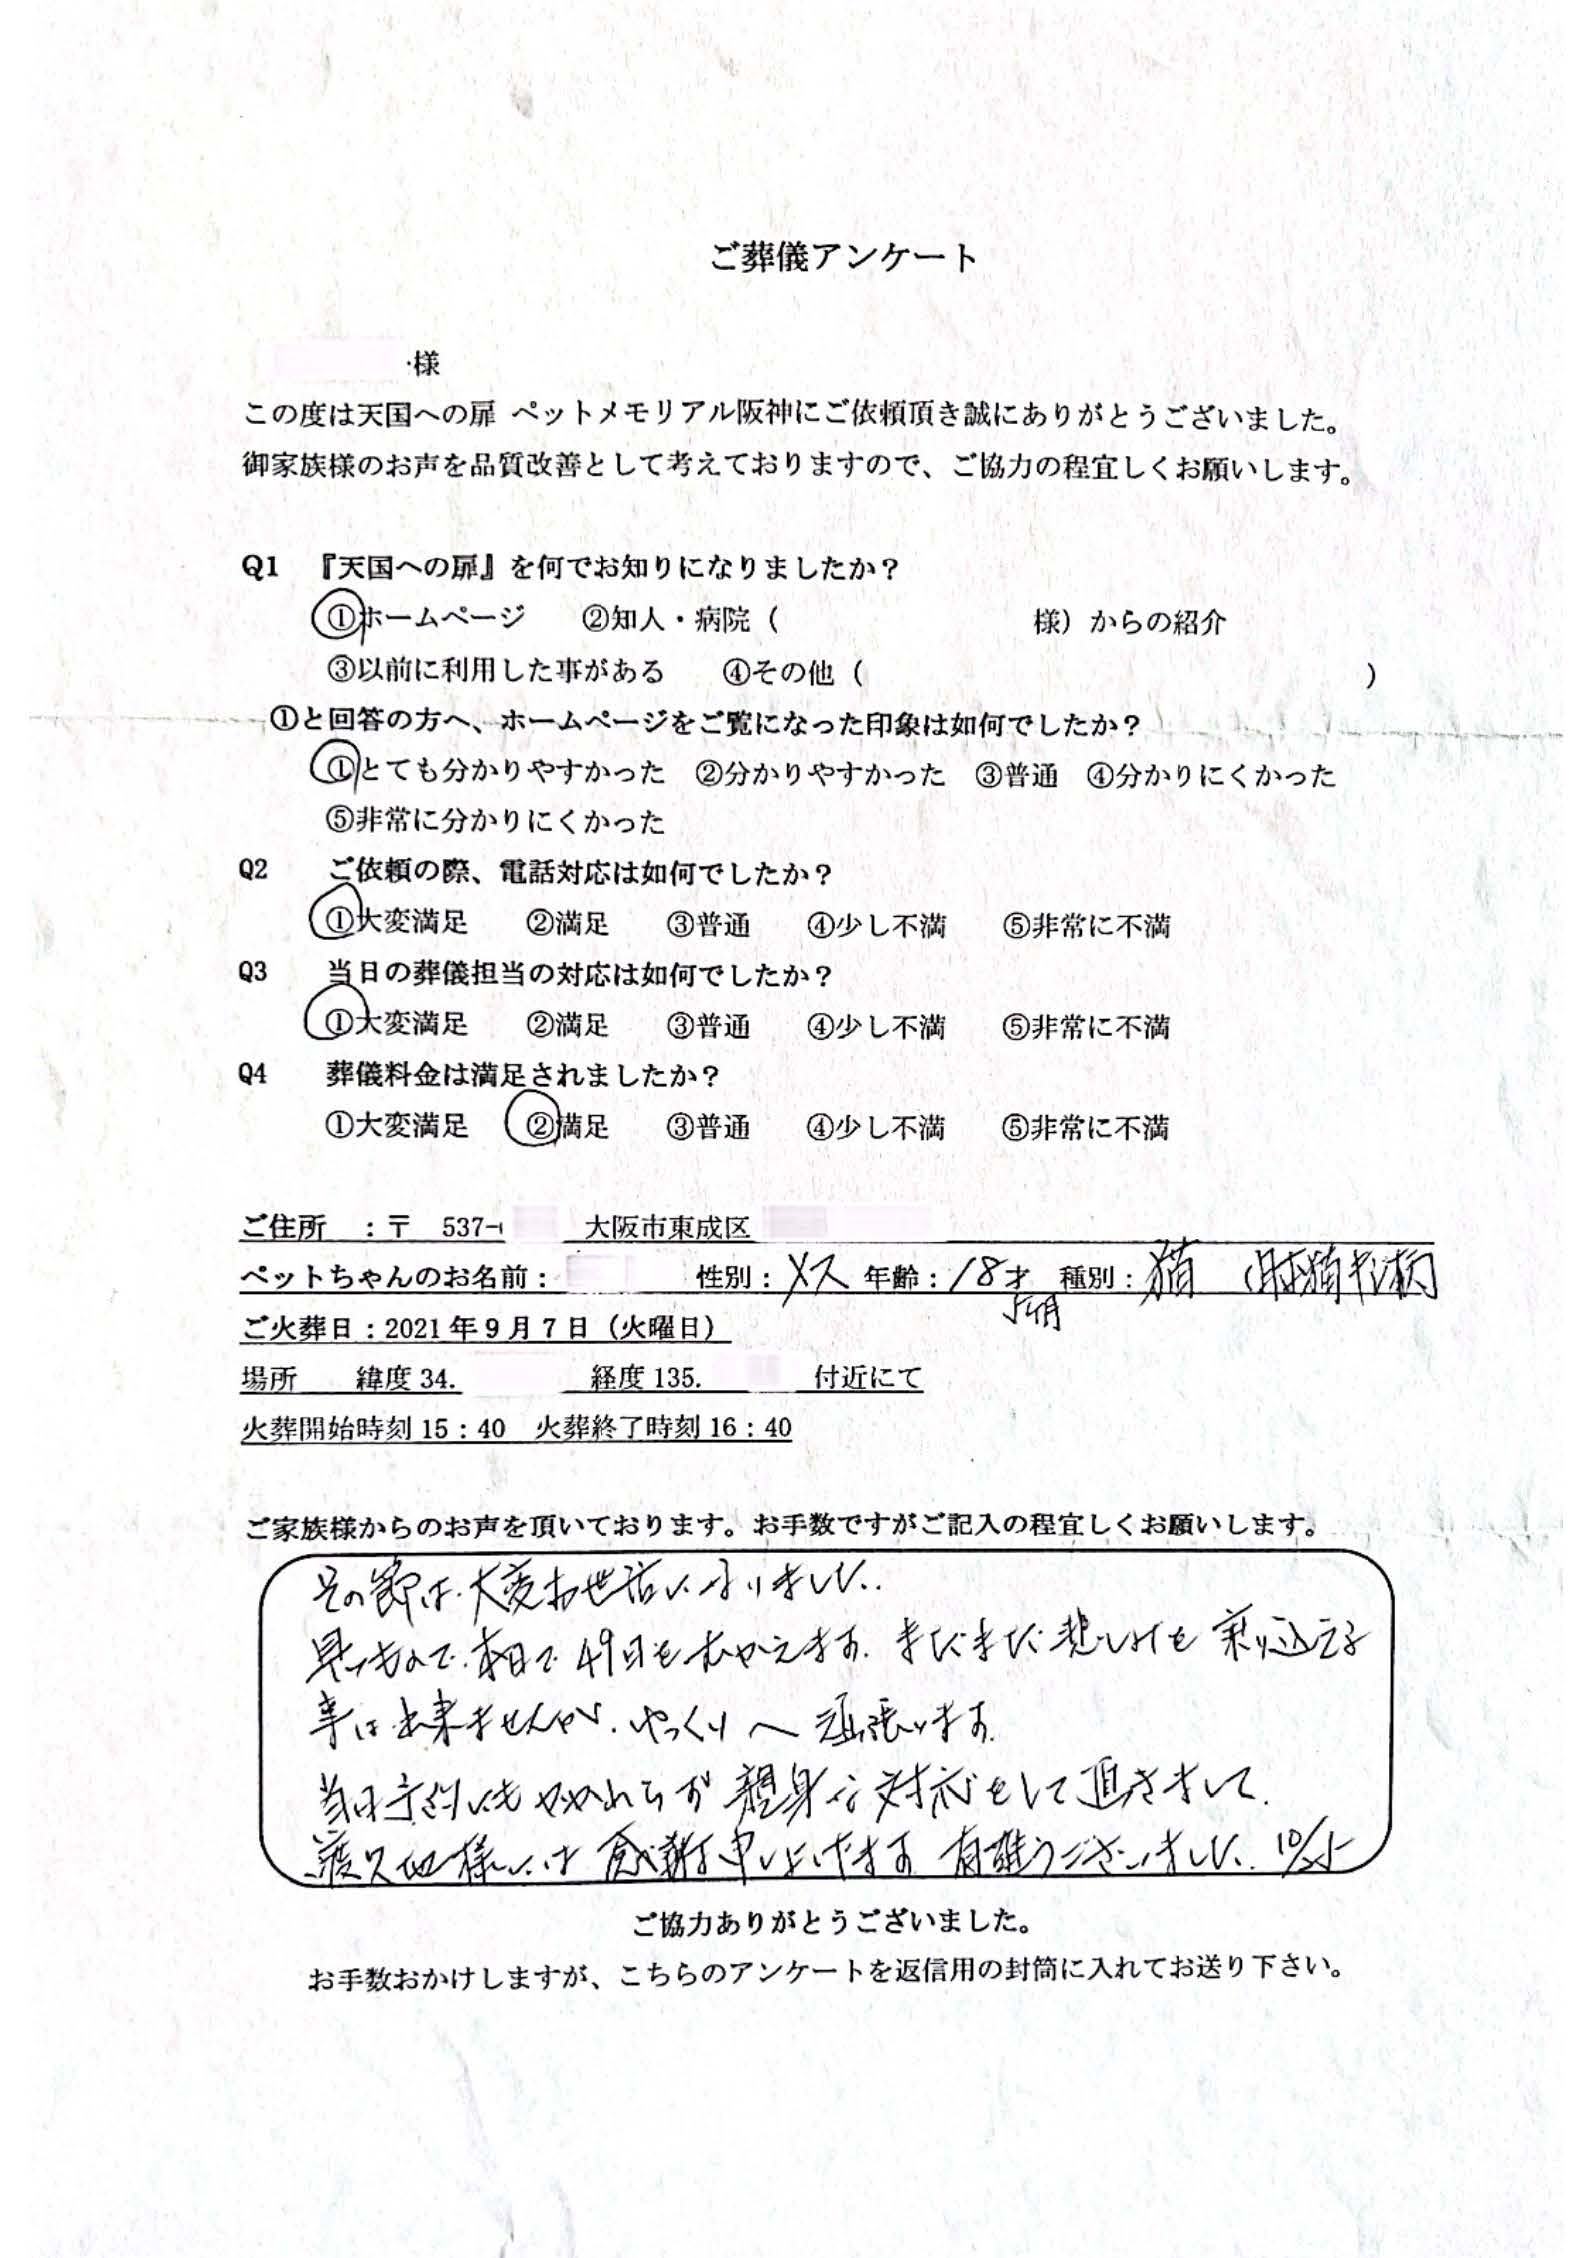 ご葬儀アンケート
様
この度は天国への扉 ペットメモリアル阪神にご依頼頂き誠にありがとうございました。
御家族様のお声を品質改善として考えておりますので、ご協力の程宜しくお願いします。
Q1 『天国への扉』を何でお知りになりましたか?
①ホームページ ②知人・病院( 様)からの紹介
③以前に利用した事がある ④その他( )
①と回答の方へ、ホームページをご覧になった印象は如何でしたか?
①とても分かりやすかった ②分かりやすかった ③普通 ④分かりにくかった
⑤非常に分かりにくかった
Q2 ご依頼の際、電話対応は如何でしたか?
①大変満足 ②満足 ③普通 ④少し不満 ⑤非常に不満
Q3 当日の葬儀担当の対応は如何でしたか?
①大変満足 ②満足 ③普通 ④少し不満 ⑤非常に不満
Q4 葬儀料金は満足されましたか?
①大変満足 ②満足 ③普通 ④少し不満 ⑤非常に不満
ご住所 :〒 537- 大阪市東成区
ペットちゃんのお名前: 性別:メス 年齢:18才 種別:猫
5ヶ月
ご火葬日:2021年9月7日(火曜日)
場所 緯度34. 経度135. 付近にて
火葬開始時刻15:40 火葬終了時刻16:40
ご家族様からのお声を頂いております。お手数ですがご記入の程宜しくお願いします。
その節は、大変お世話になりました。
早いもので、本日で49日をむかえます。まだまだ悲しみを乗り込える
事は出来ませんが、ゆっくりへ頑張ります。
当日 にもかかわらず 親身な対応をして頂きまして、
様には 感謝申し上げます。有難うございました。10/25
ご協力ありがとうございました。
お手数おかけしますが、こちらのアンケートを返信用の封筒に入れてお送り下さい。